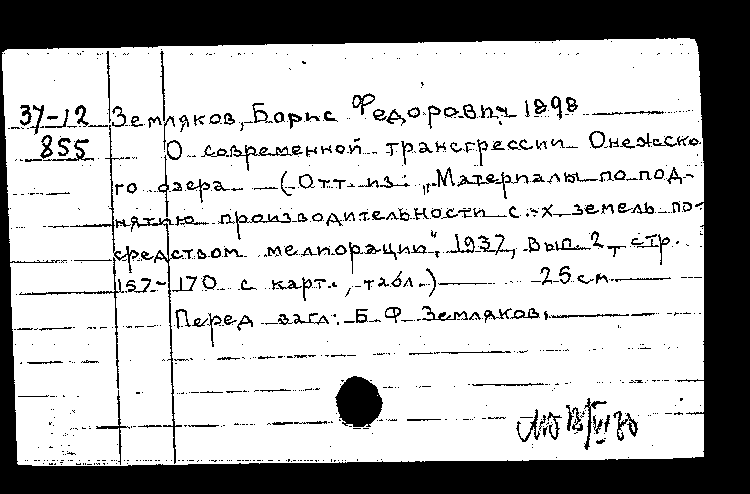 37-12 Земляков, Борис Федорович 1898
855 О современной трансгрессии Онежско
го озера (Отт. из: „Материалы по под-
нятию производительности с.-х. земель по-
средством мелиорации", 1937, вып. 2, стр.
157-170 с карт., табл.) 25 см
Перед загл: Б. Ф. Земляков.